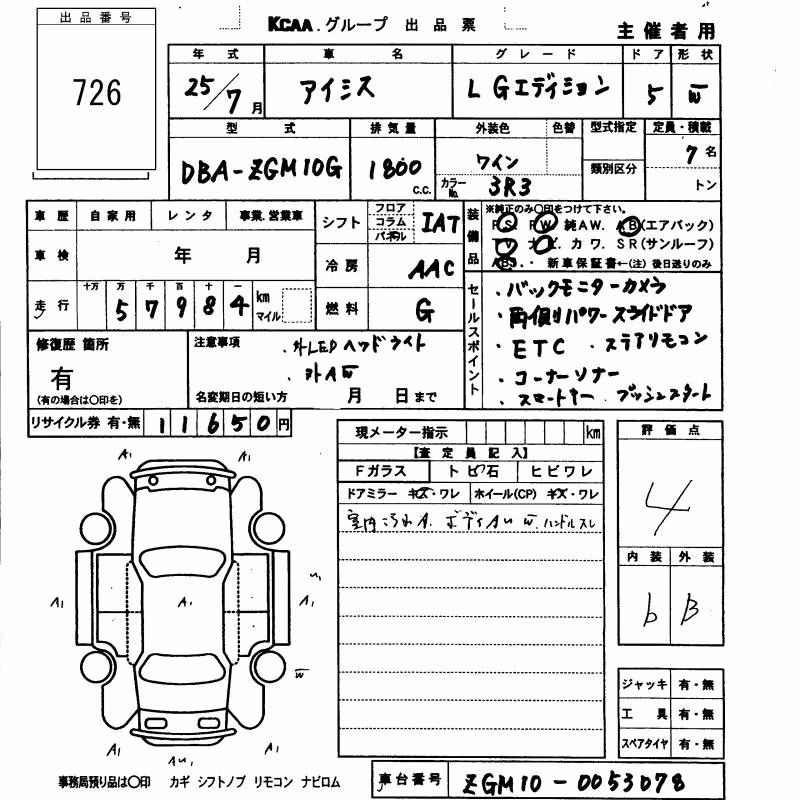 出品番号
726
KCAA.グループ 出品票
主催者用
年式 車名 グレード ドア 形状
25/7月 アイシス L Gエディション 5 W
型式 排気量 外装色 色替 型式指定 定員・積載
類別区分
DBA-ZGM10G 1800 C.C. ワイン 7名
カラーNo. 3R3 トン
車歴 自家用 レンタ 事業.営業車
車検 年 月
走行 十万 万 千 百 十 一
5 7 9 8 4 km マイル
シフト フロア コラム パネル IAT
冷房 AAC
燃料 G
装備品
※純正のみ○印をつけて下さい。
P.S. P.W. 純A.W. A.B(エアバック)
T.V ナビ. カワ. S.R(サンルーフ)
ABS.・ 新車保証書←(注)後日送りのみ
セールスポイント
・バックモニターカメラ
・両側パワースライドドア
・ETC ・ステアリモコン
・コーナーソナー
・スマートキー ・プッシュスタート
修復歴 箇所
有
(有の場合は○印を)
注意事項
・外LEDヘッドライト
・外AW
名変期日の短い方 月 日まで
リサイクル券 有・無 11650円
現メーター指示 km
【査定員記入】
Fガラス トビ石 ヒビワレ
ドアミラー キズ・ワレ ホイール(CP) キズ・ワレ
室内こうれA. ボディAU W. ハンドルスレ
評価点
4
内装 外装
b B
A1 A1
A1 A1 U1 A1
W
A1 AU1 A1
ジャッキ 有・無
工具 有・無
スペアタイヤ 有・無
事務局預り品は○印 カギ シフトノブ リモコン ナビロム
車台番号 ZGM10-0053078